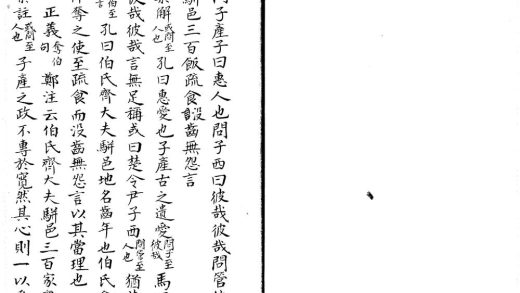 問子產子曰惠人也問子西曰彼哉彼哉問管
駢邑三百飯疏食沒齒無怨言
解或問至人也孔曰惠愛也子產古之遺愛問子至彼哉馬
哉彼哉言無足稱或曰楚令尹子西問管至人也猶
孔曰伯氏齊大夫駢邑地名齒年也伯氏
奪之使至疏食而沒齒無怨言以其當理也
正義奪伯句鄭注云伯氏齊大夫駢邑三百家
註或問至人也子產之政不專於寬然其心則一以